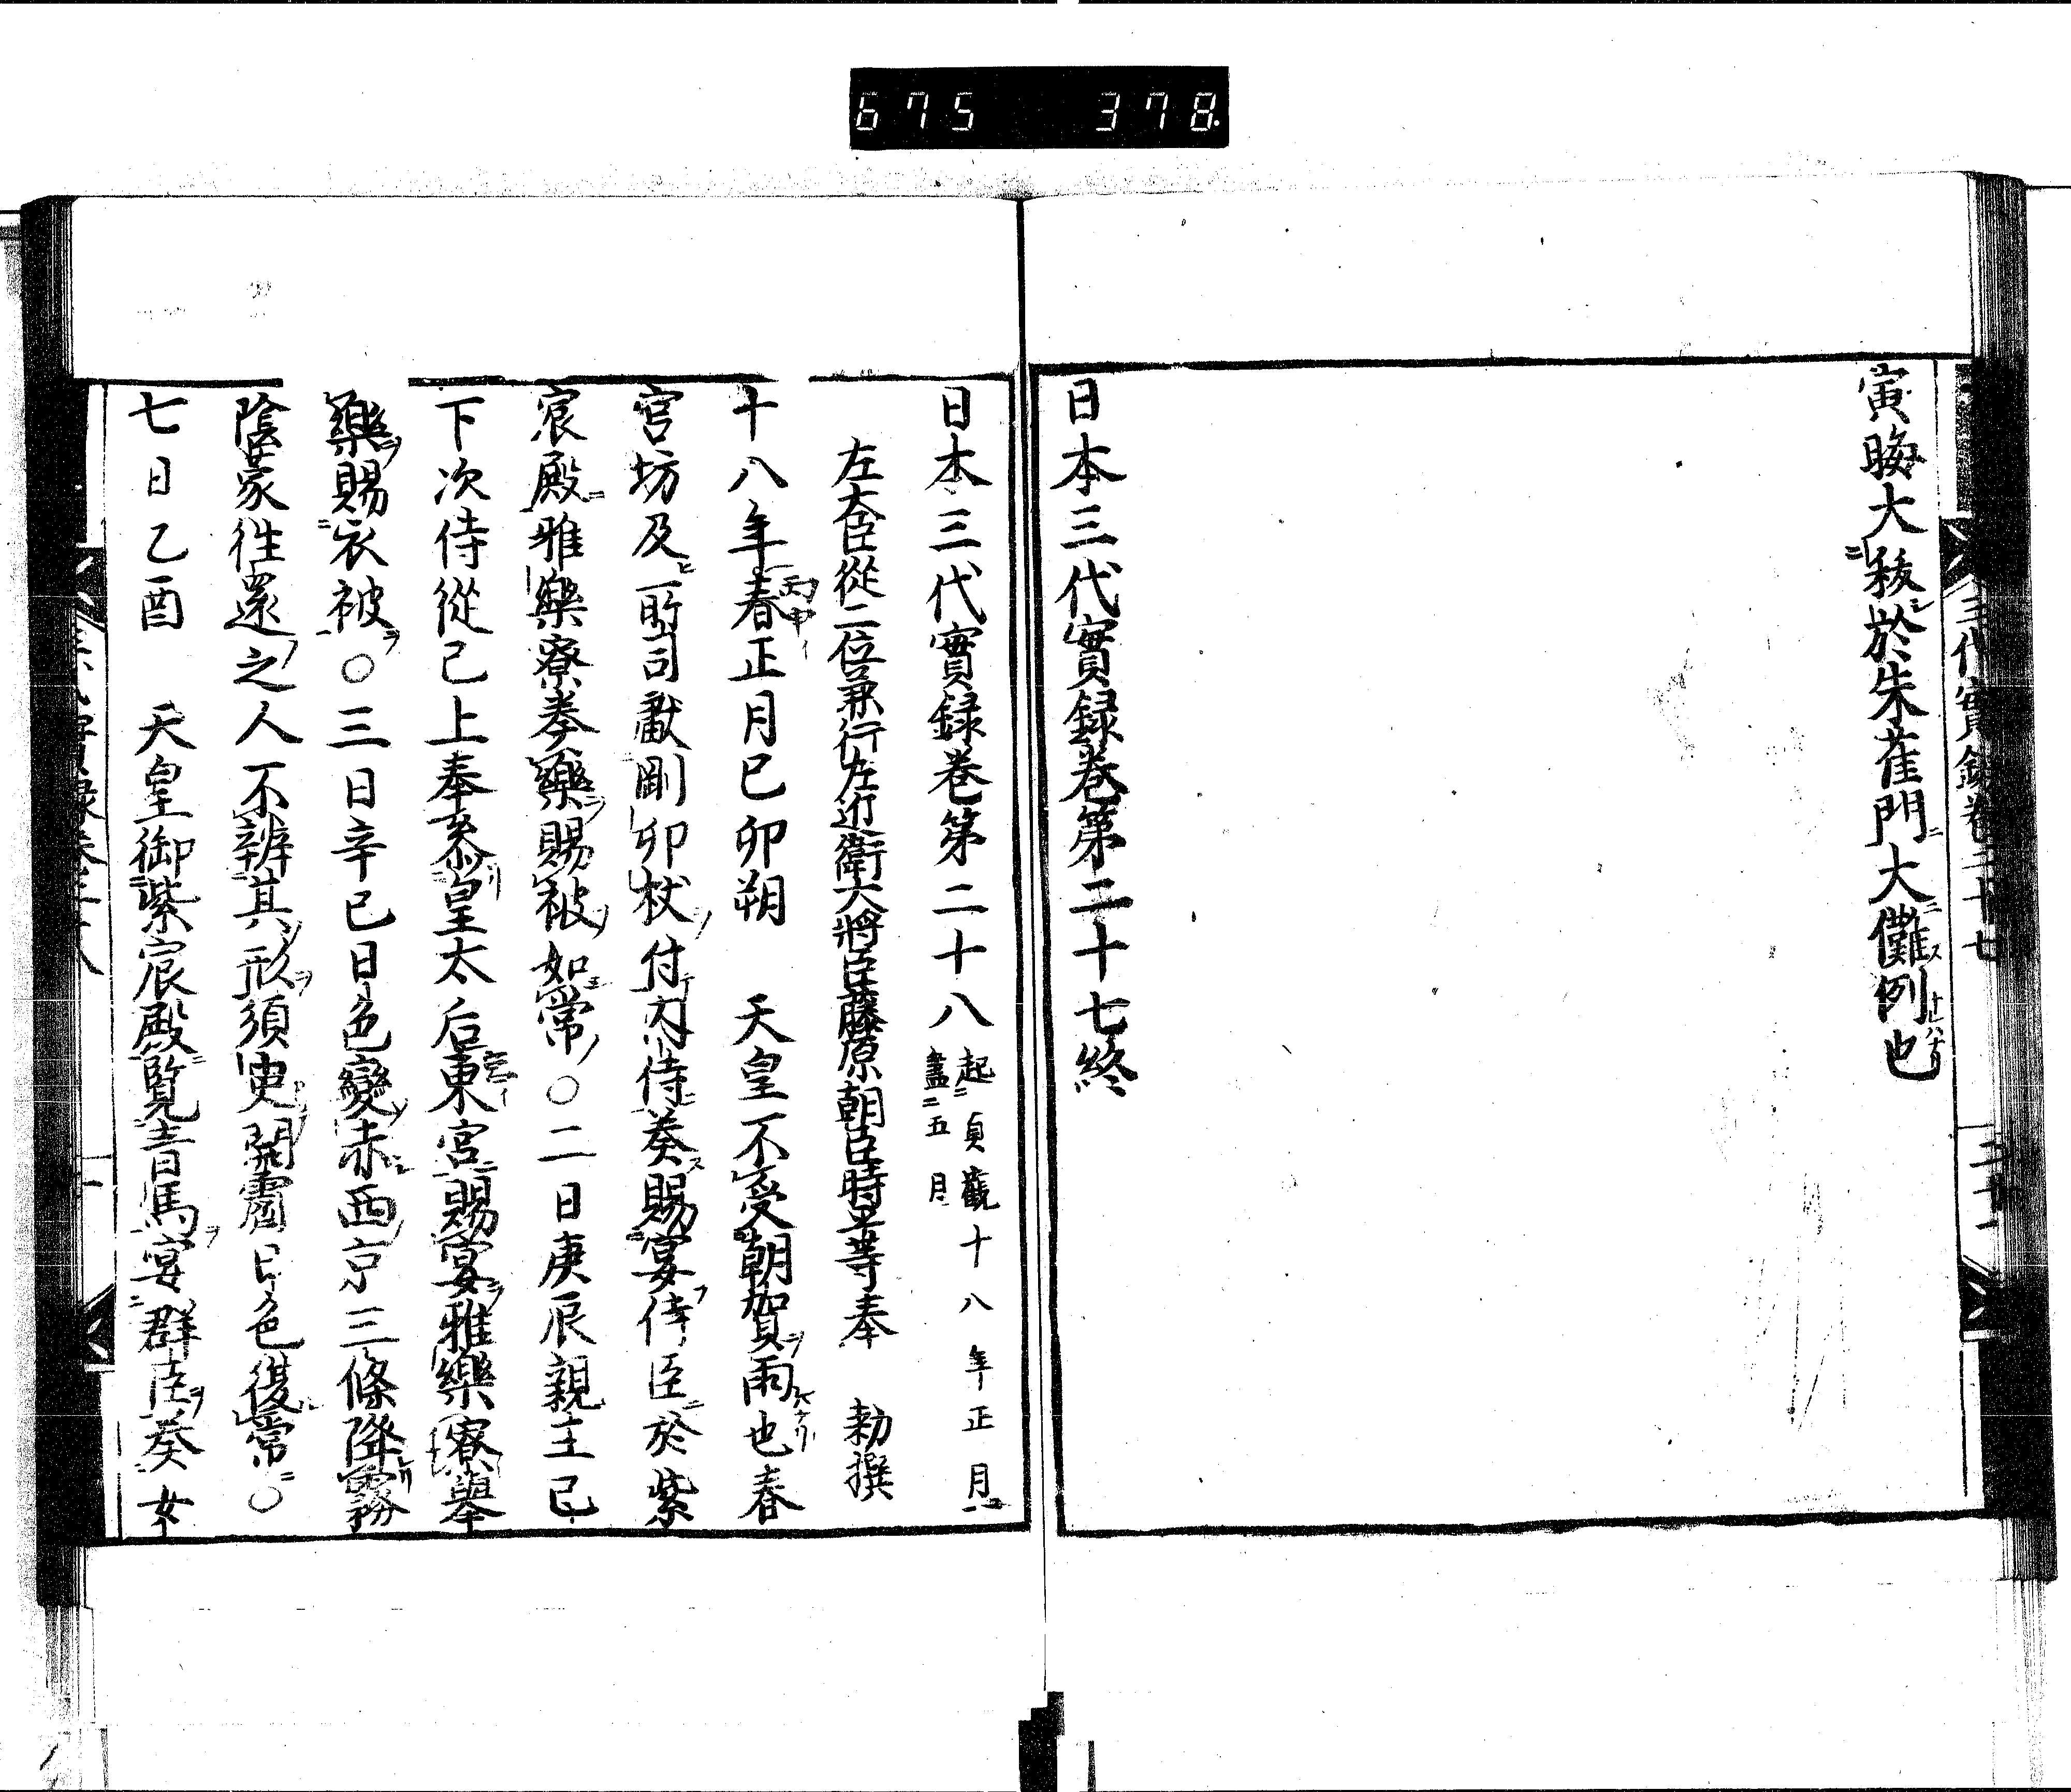 675 378
三代實録卷二十七
寅晦大秡於朱雀門大儺例也
日本三代實録卷第二十七終
日本三代實録卷第二十八
起貞觀十八年正月
盡五月
左大臣從二位兼行左近衛大將臣藤原朝臣時平等奉 勅撰
十八年春正月己卯朔 天皇不受朝賀雨也春
宮坊及所司獻剛卯杖付内侍奏賜宴侍臣於紫
宸殿雅樂寮奏樂賜被如常○二日庚辰親王已
下次侍從已上奉參皇太后東宮賜宴雅樂寮舉
樂賜衣被○三日辛巳日色變赤西京三條降霧
陰蒙往還之人不辨其形須臾開霽日色復常○
七日乙酉 天皇御紫宸殿覧青馬宴群臣奏女